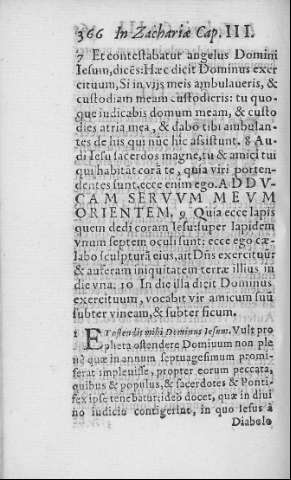 366 In Zachariæ Cap. III.
7 Et contestabatur angelus Domini
Iesum, dicẽs: Hæc dicit Dominus exer
cituum, Si in vijs meis ambulaueris, &
custodiam meam custodieris: tu quo-
que iudicabis domum meam, & custo
dies atria mea, & dabo tibi ambulan-
tes de his qui nũc hic assistunt. 8 Au-
di Iesu sacerdos magne, tu & amici tui
qui habitãt corã te, quia viri porten-
dentes sunt. ecce enim ego. ADDV-
CAM SERVVM MEVM
ORIENTEM, 9 Quia ecce lapis
quem dedi coram Iesu: super lapidem
vnum septem oculi sunt: ecce ego cæ-
labo sculpturã eius, ait Dñs exercituũ
& auferam iniquitatem terræ illius in
die vna. 10 In die illa dicit Dominus
exercituum, vocabit vir amicum suũ
subter vineam, & subter ficum.
1 ET ostendit mihi Dominus Iesum. Vult pro
pheta ostendere Dominum non ple
nè quæ in annum septuagesimum promi-
serat impleuisse, propter eorum peccata,
quibus & populus, & sacerdotes & Ponti-
fex ipse tenebatur: ideò docet, quæ in diui
no iudicio contigerint, in quo Iesus à
Diabolo